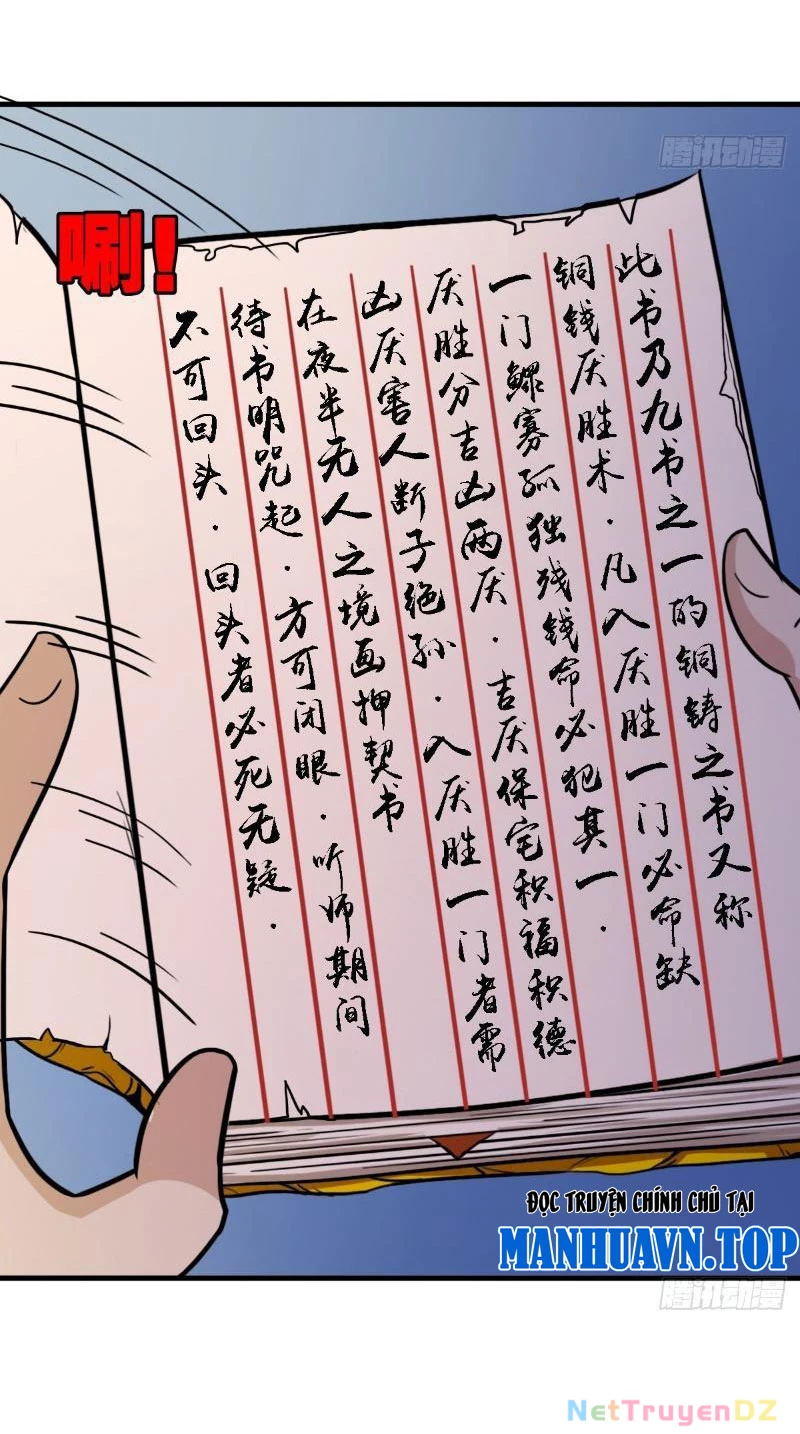 腾讯动漫
唰!
此书乃九书之一的铜铸之书又称
铜钱厌胜术.凡入厌胜一门必命缺
一门鳏寡孤独残钱命必犯其一.
厌胜分吉凶两厌.吉厌保宅积福积德
凶厌害人断子绝孙.入厌胜一门者需
在夜半无人之境画押契书
待书明咒起.方可闭眼.听师期间
不可回头.回头者必死无疑.
ĐỌC TRUYỆN CHÍNH CHỦ TẠI
MANHUAVN.TOP
腾讯动漫
NetTruyenDZ